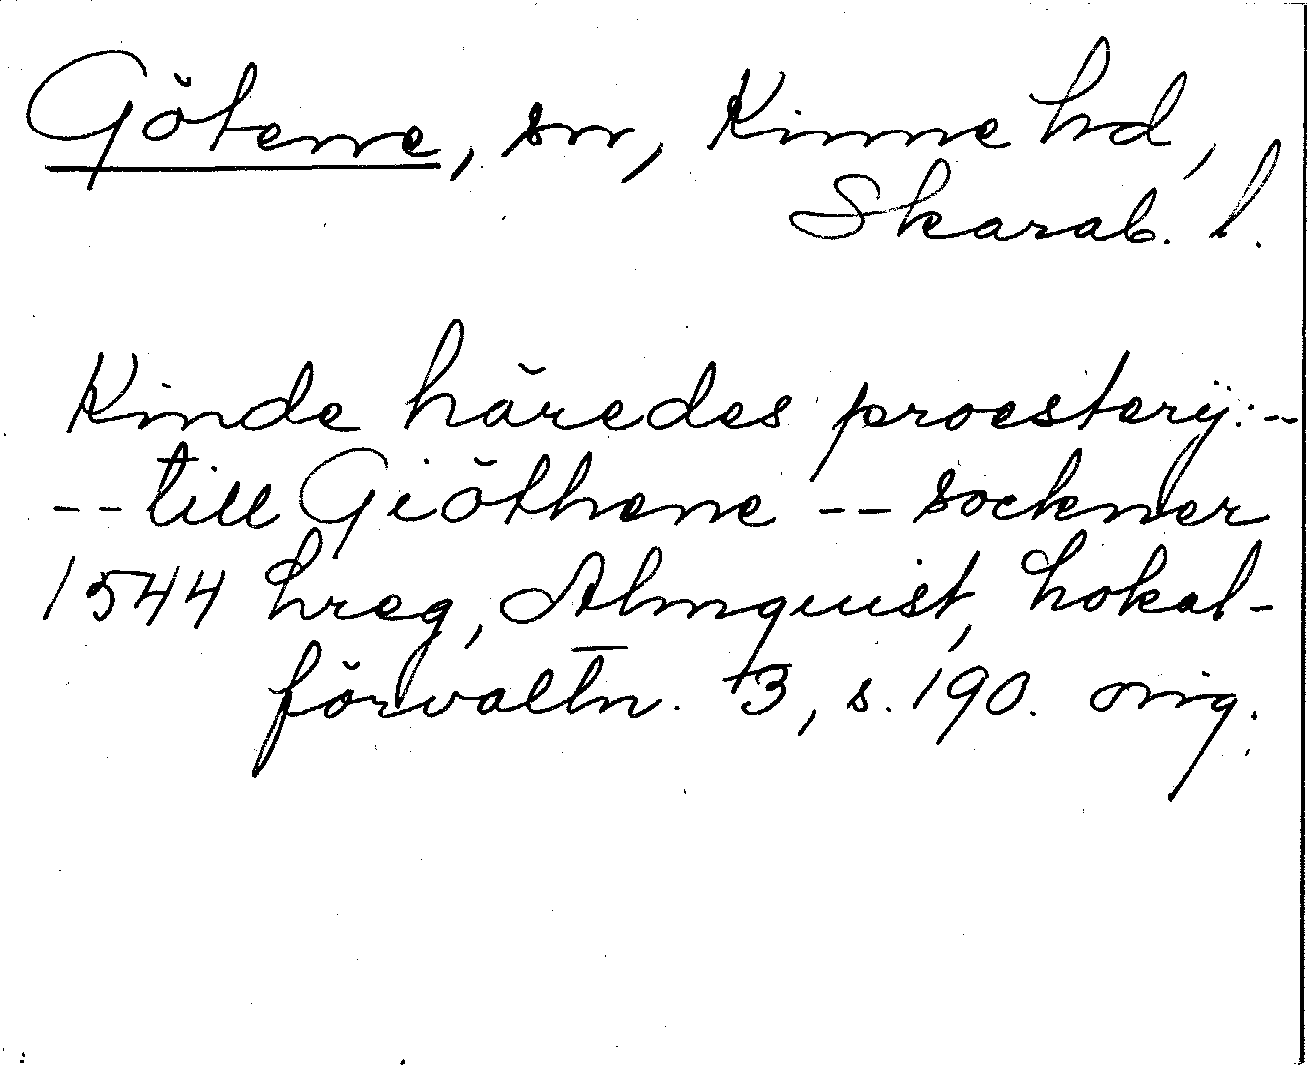 Götene, sn, Kinne hd,
Skarab. l.
Kinde häredes proesterÿ: -
-- till Giöthene -- sockner
1544 hreg, Almquist, Lokal-
förvaltn. 3, s. 190. orig.